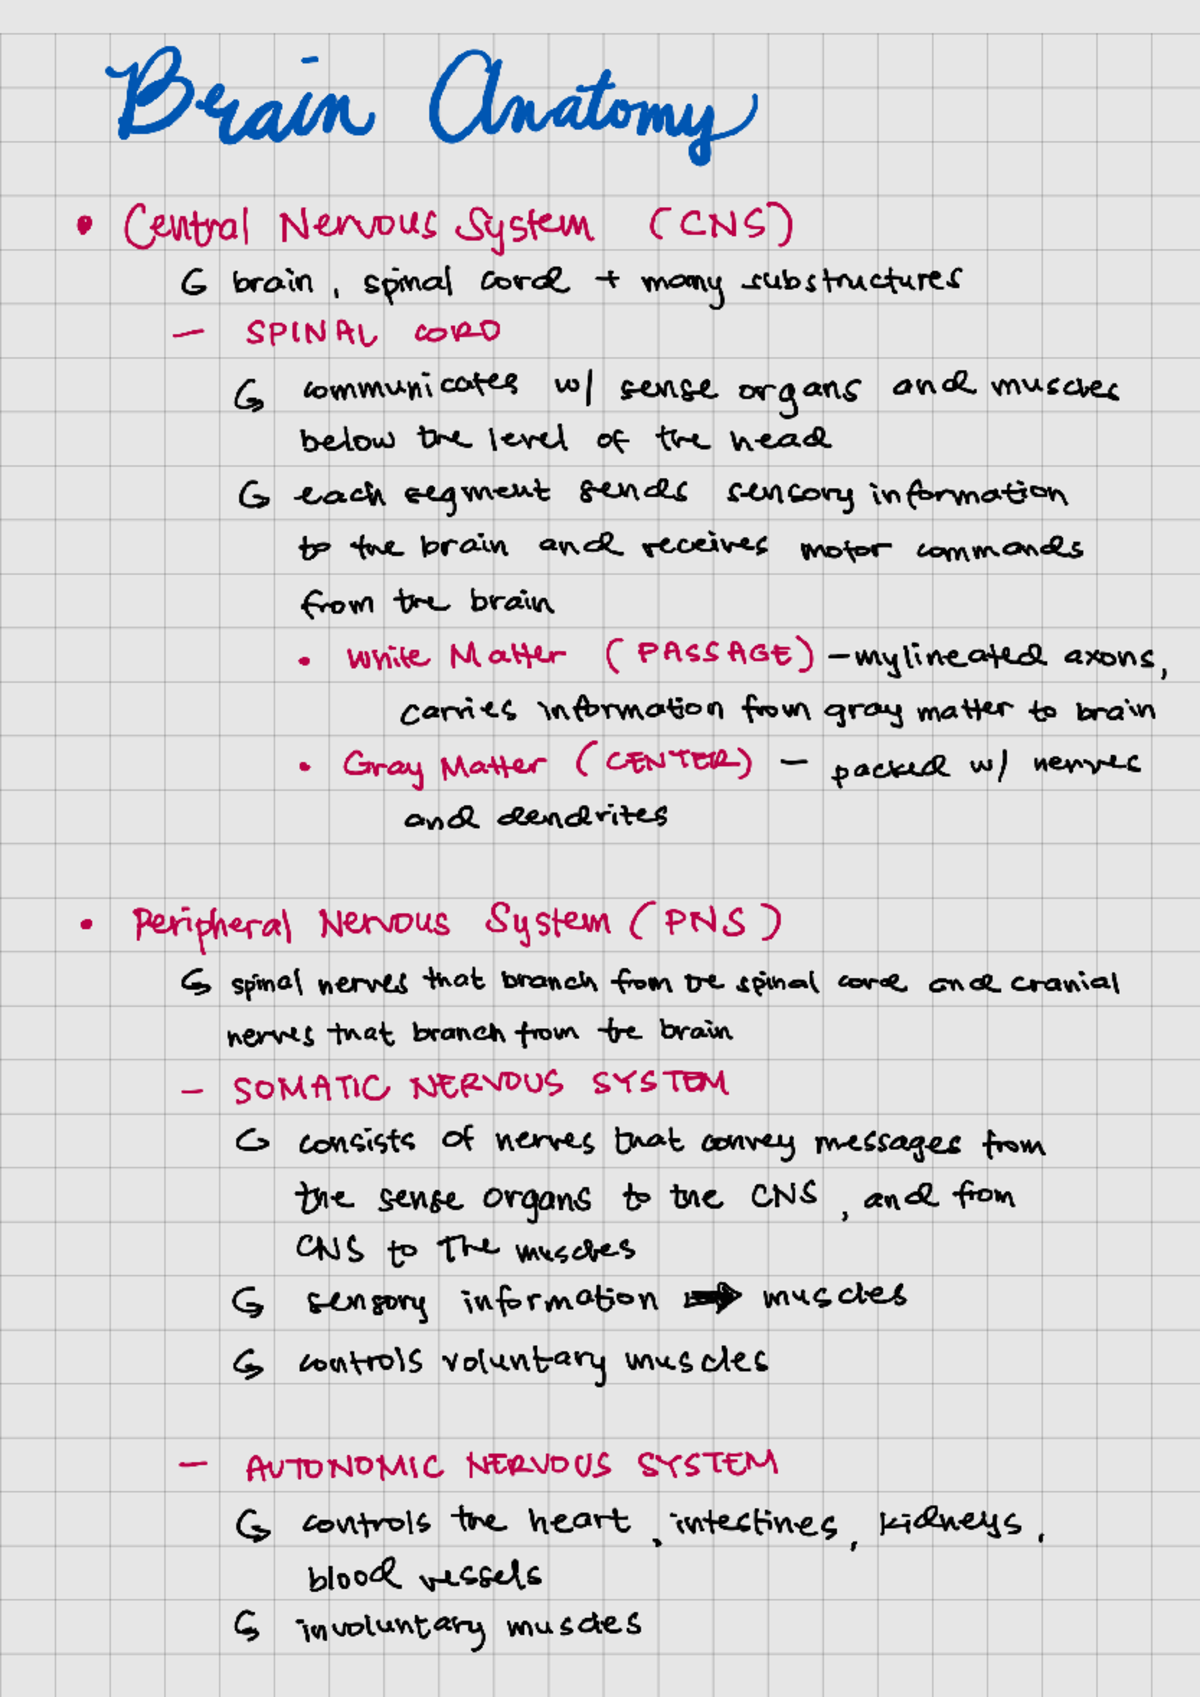 Brain Anatomy
• Central Nervous System (CNS)
↳ brain, spinal cord + many substructures
— SPINAL CORD
↳ communicates w/ sense organs and muscles
below the level of the head
↳ each segment sends sensory information
to the brain and receives motor commands
from the brain
• White Matter (PASSAGE) — mylineated axons,
carries information from gray matter to brain
• Gray Matter (CENTER) — packed w/ nerves
and dendrites
• Peripheral Nervous System (PNS)
↳ spinal nerves that branch from the spinal cord and cranial
nerves that branch from the brain
— SOMATIC NERVOUS SYSTEM
↳ consists of nerves that convey messages from
the sense organs to the CNS, and from
CNS to the muscles
↳ sensory information → muscles
↳ controls voluntary muscles
— AUTONOMIC NERVOUS SYSTEM
↳ controls the heart, intestines, kidneys,
blood vessels
↳ involuntary muscles